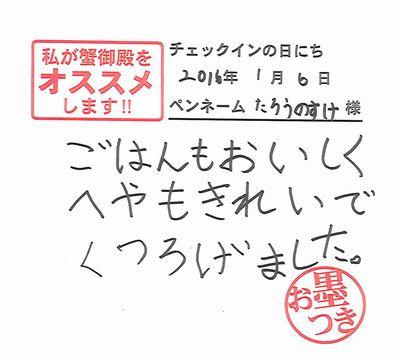 私が蟹御殿を
オススメ
します!!
チェックインの日にち
2016年 1月 6日
ペンネーム たろうのすけ 様
ごはんもおいしく
へやもきれいで
くつろげました。
お墨つき